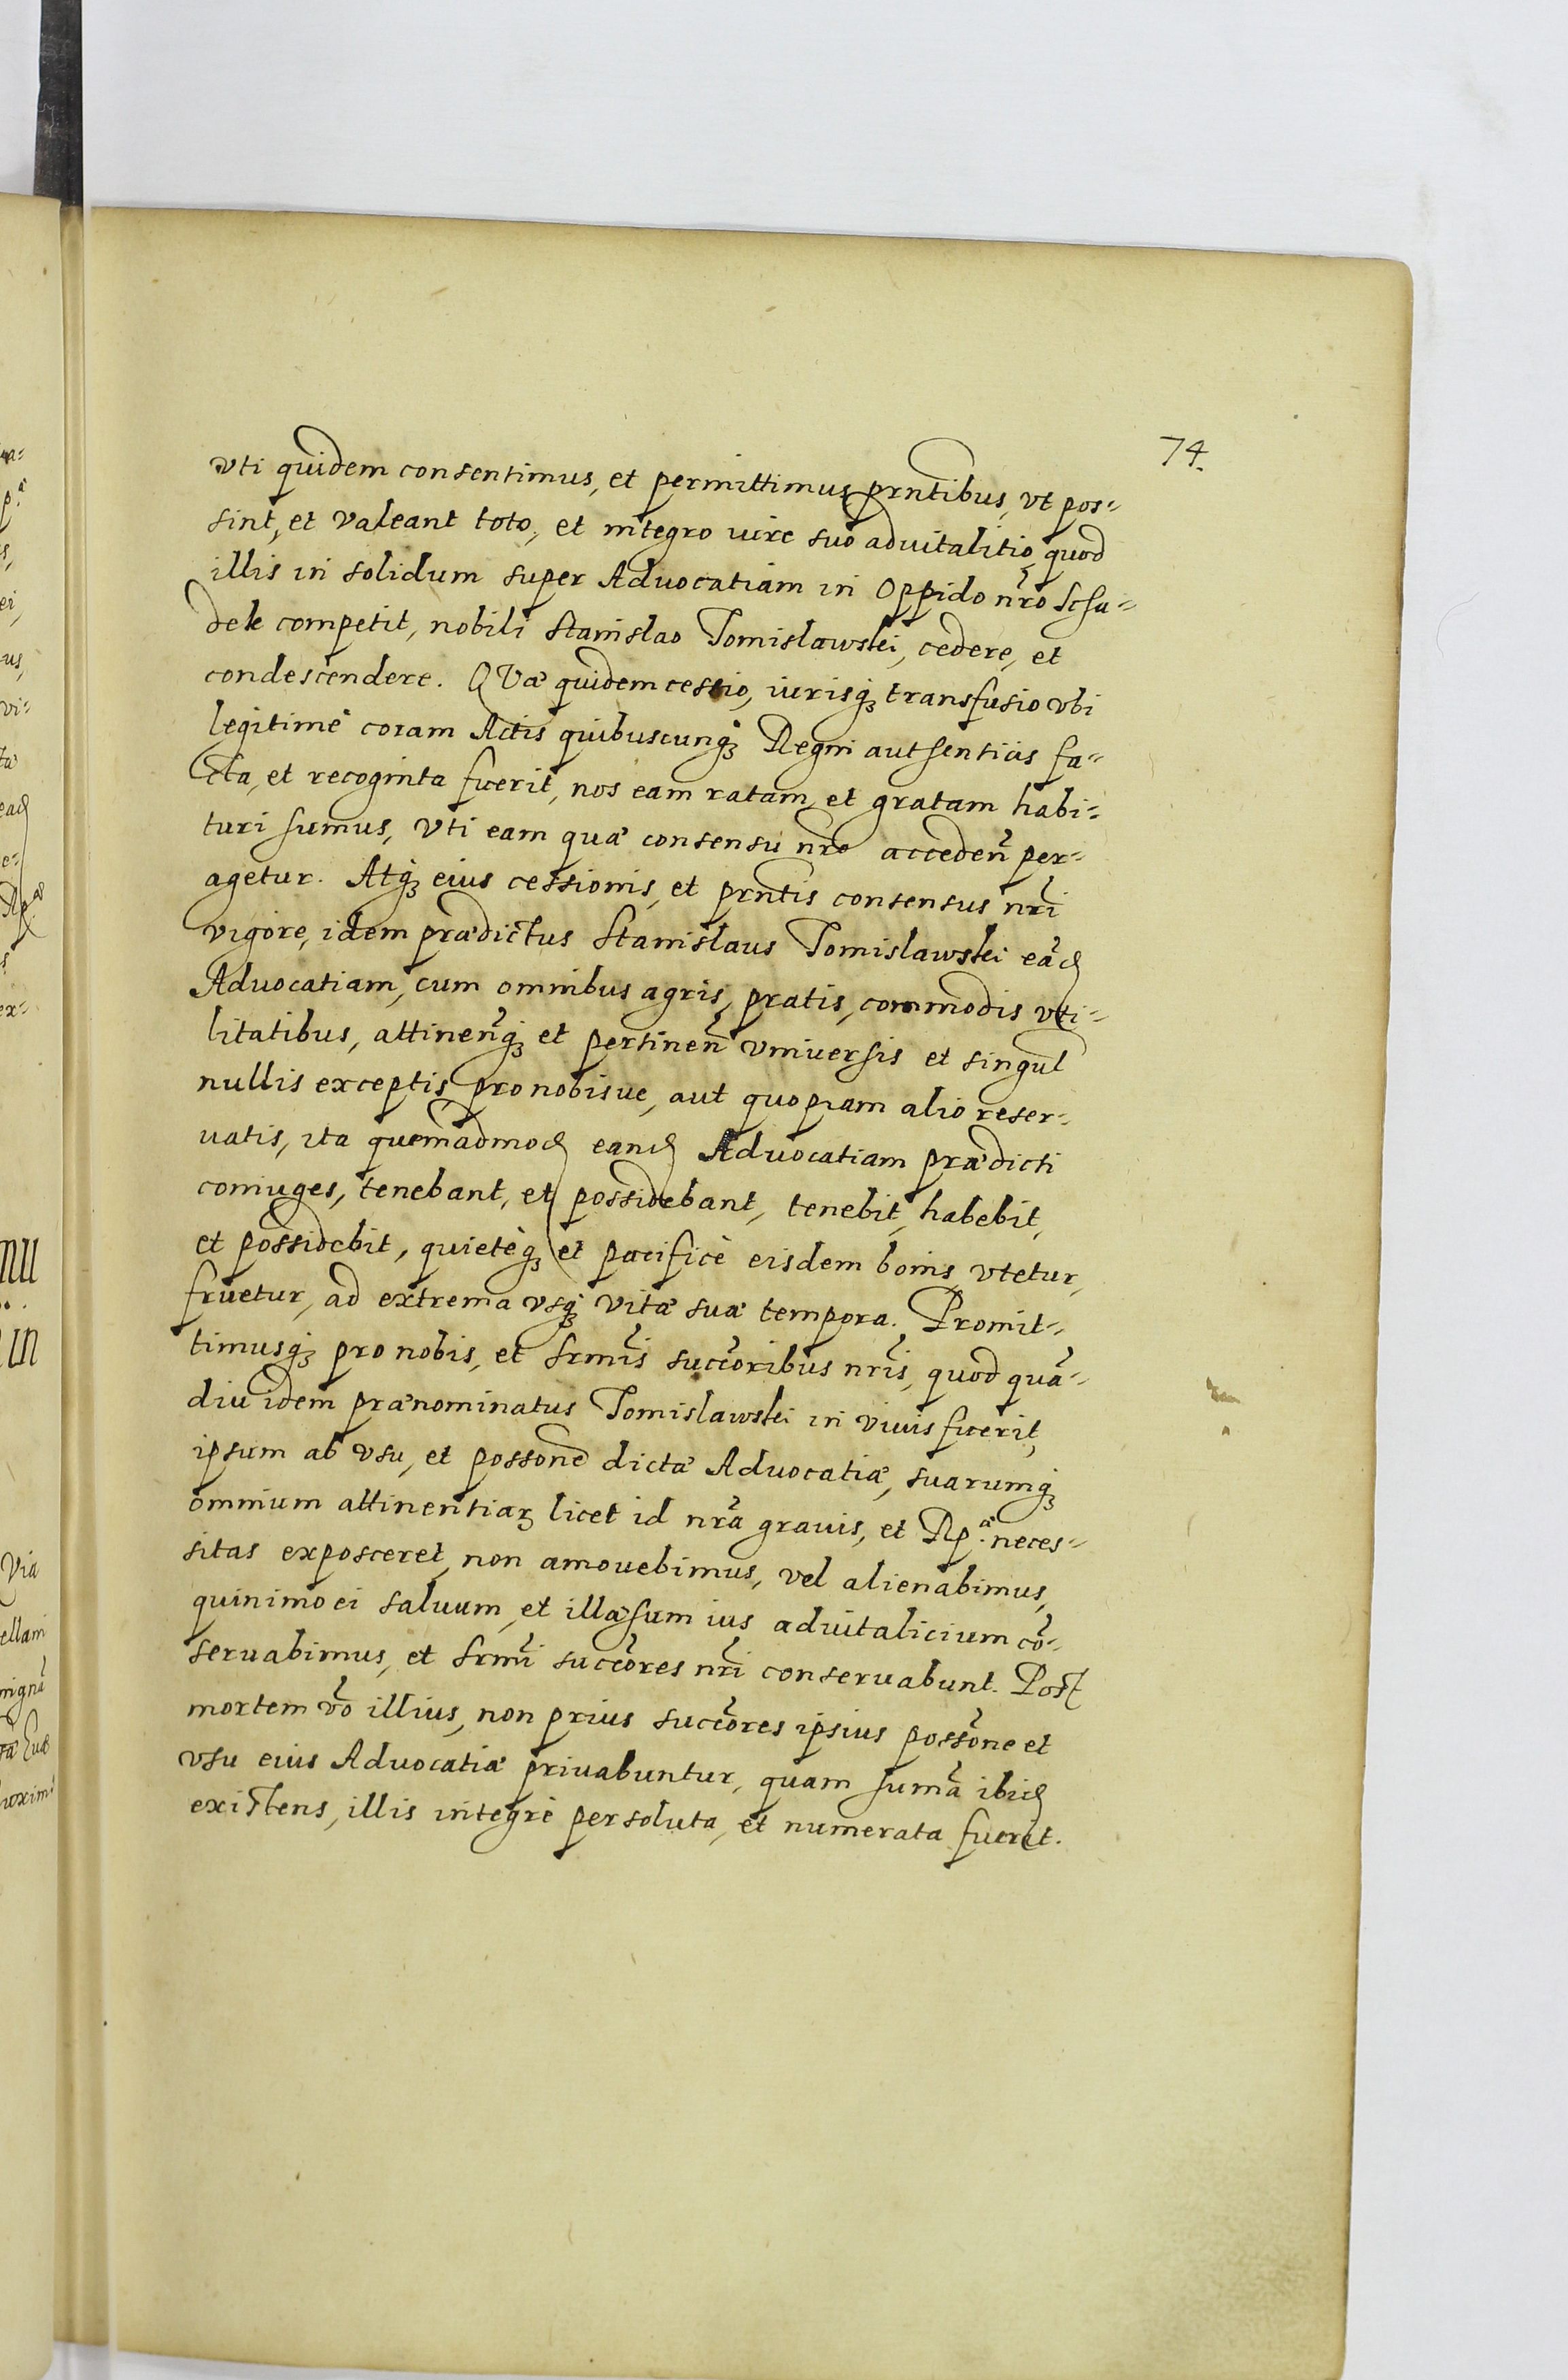 74.
vti quidem consentimus, et permittimus prñtibus, vt pos=
sint, et valeant toto, et integro iure suo aduitalitio, quod
illis in solidum super Aduocatiam in Oppido nr̃o
competit, nobili Stanislao Tomislawski, cedere, et
condescendere. QVæ quidem cessio, iurisqꝫ transfusio vbi
legitimè coram Actis quibuscunqꝫ Regni autsenticis fa=
cta, et recoginta fuerit, nos eam ratam, et gratam habi=
turi sumus, vti eam quæ consensu nr̃o acceden̄ per=
agetur. Atqꝫ eius cessionis, et prñtis consensus nr̃i
vigore, idem prædictus Stanislaus Tomislawski eãd
Aduocatiam, cum omnibus agris, pratis, commodis vti=
litatibus, attinen̄qꝫ et pertinen̄ vniuersis et singul
nullis exceptis pro nobisue, aut quopiam alio reser=
uatis, ita quemadmod eand Aduocatiam prædicti
coniuges, tenebant, et possidebant, tenebit, habebit,
et possidebit, quietèqꝫ et pacificè eisdem bonis vtetur,
fruetur, ad extrema vsqꝫ vitæ suæ tempora. Promit=
timusqꝫ pro nobis, et Srmĩs succõribus nr̃is, quod quã=
diu idem prænominatus Tomislawski in viuis fuerit,
ipsum ab vsu, et possone dictæ Aduocatiæ, suarumqꝫ
omnium attinentiaꝝ licet id nr̃a grauis, et Rp.ᵃ neces=
sitas exposceret, non amouebimus, vel alienabimus,
quinimo ei saluum, et illæsum ius aduitalicium cõ=
seruabimus, et Srmĩ succõres nr̃i conseruabunt. Post
mortem võ illius, non prius succõres ipsius possõne et
vsu eius Aduocatiæ priuabuntur, quam sumã ibid
existens, illis integrè persoluta, et numerata fuerit.